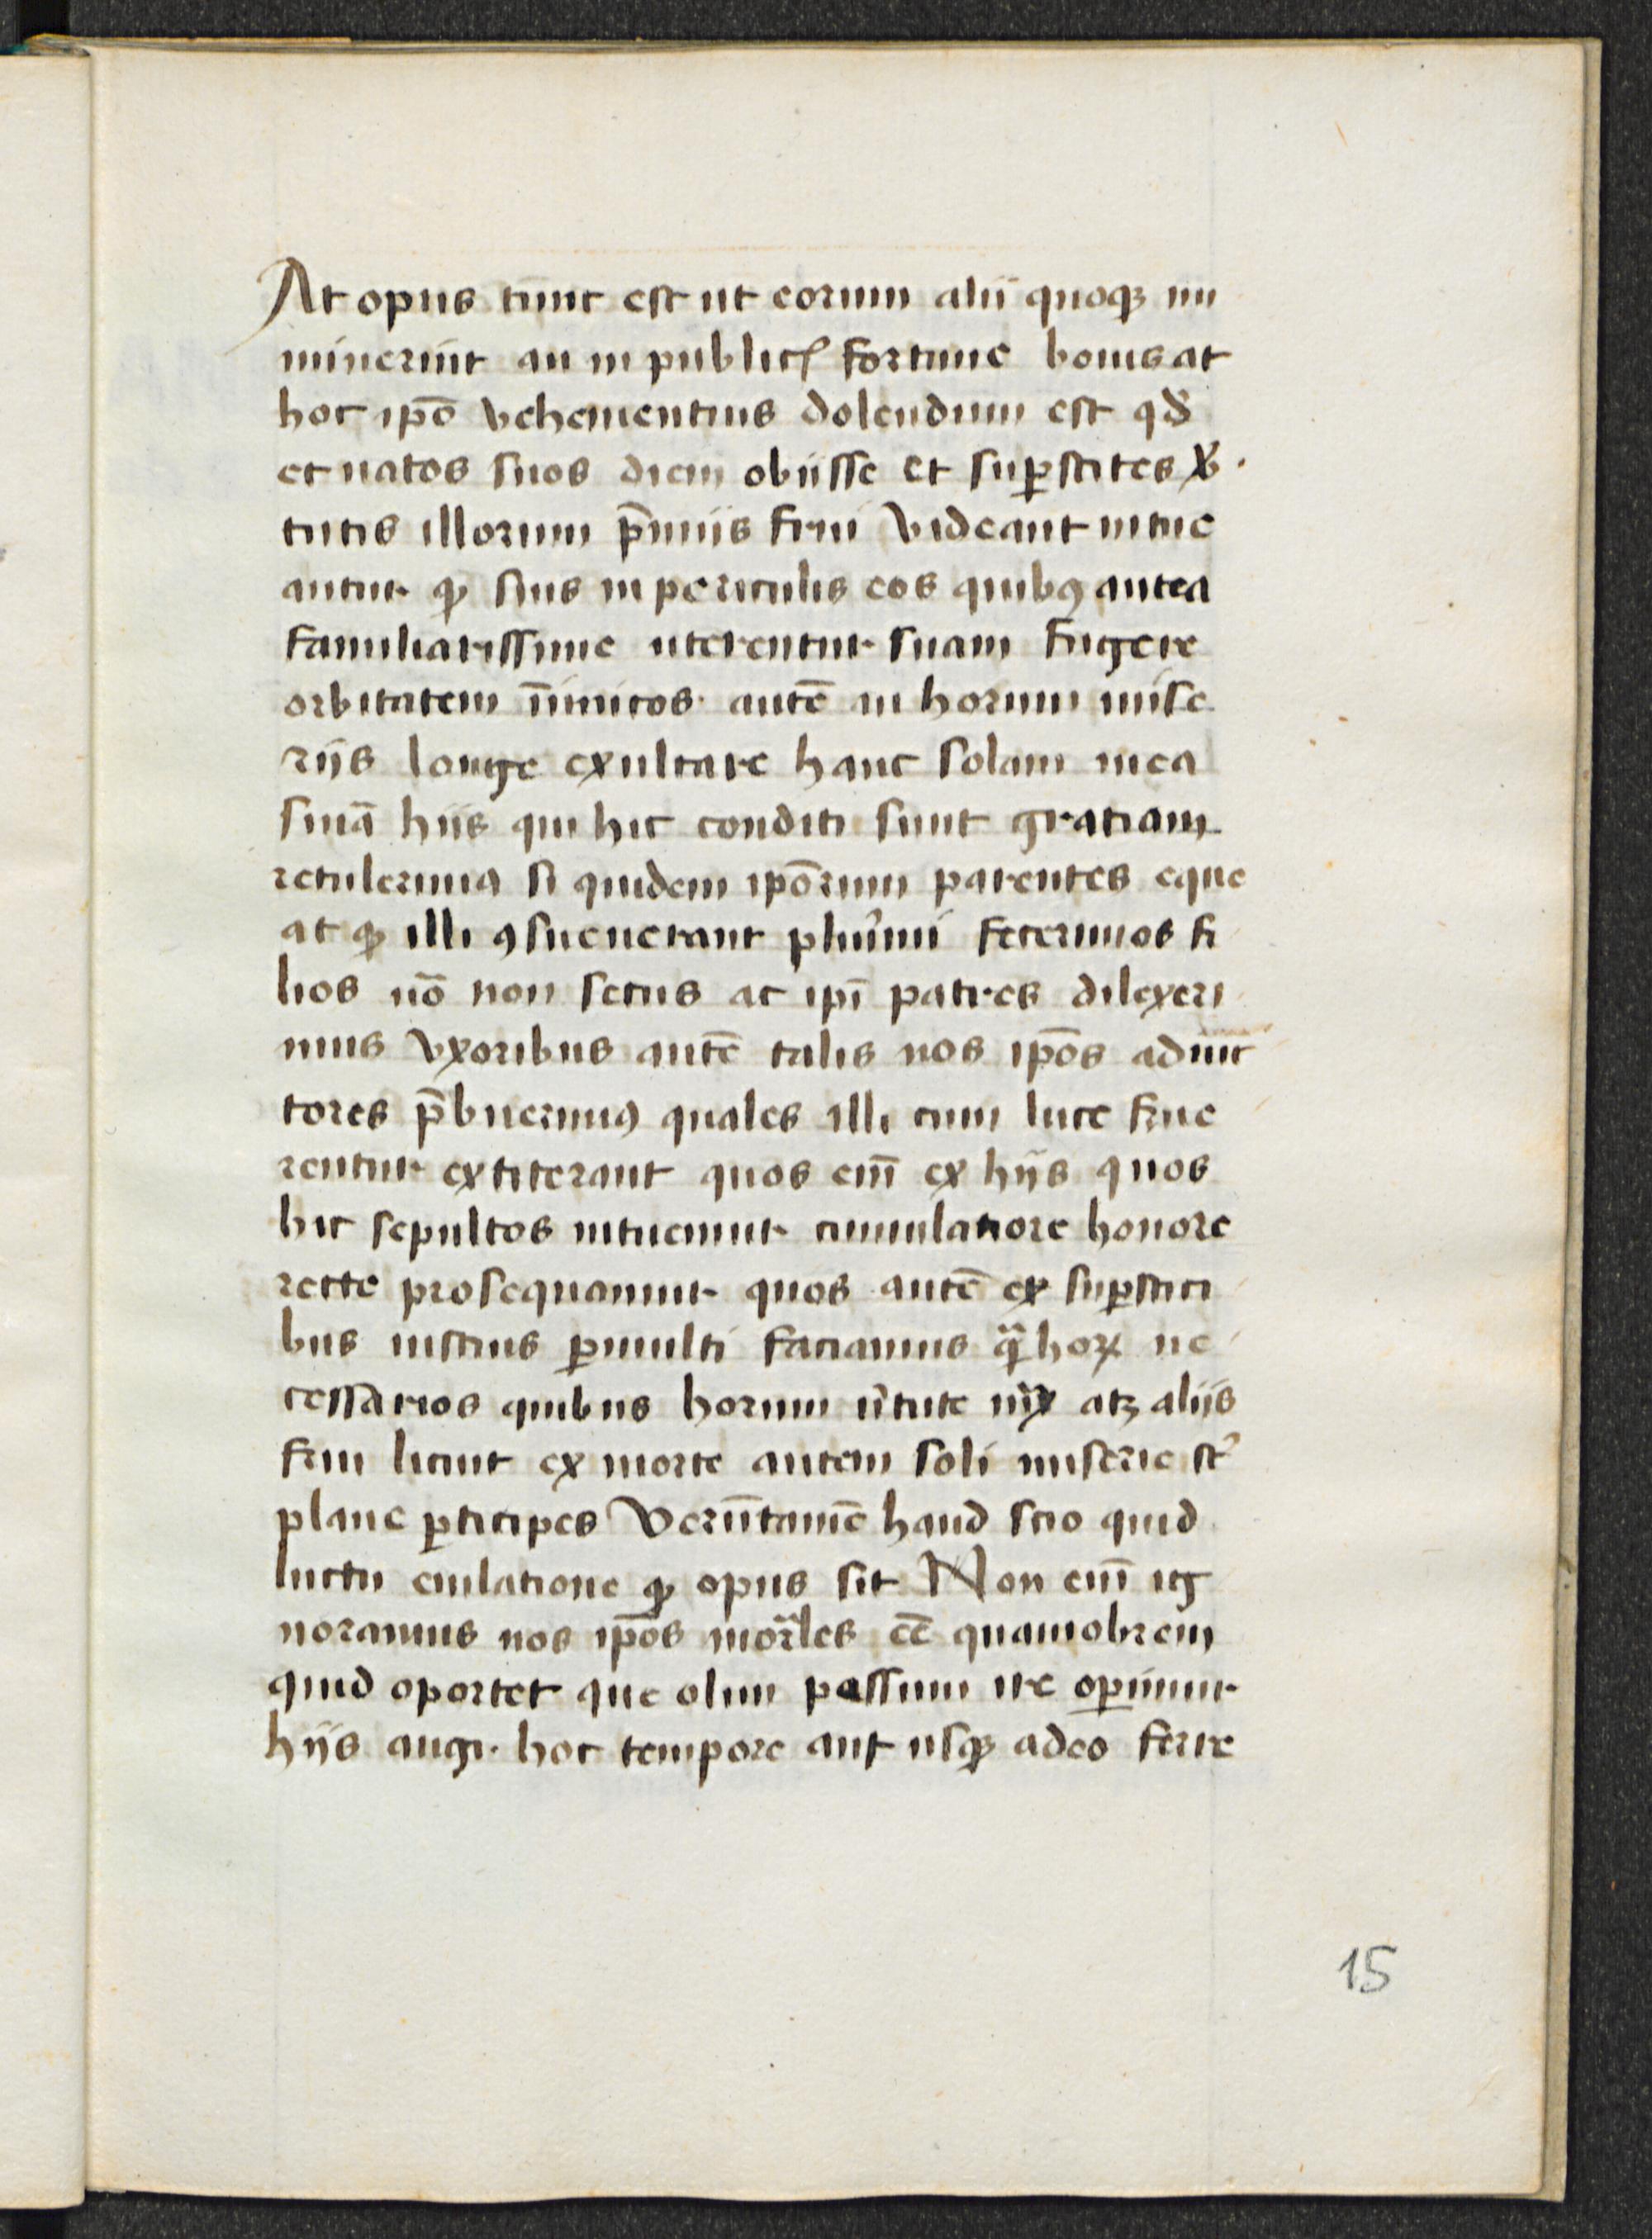 At opus tunc est ut eorum alii quoqꝫ mi
minerint an in publicꝭ fortune bonis at
hoc ip̄o vehementius dolendum est qđ
et natos suos diem obiisse et suꝑstites v̾
tutis illorum p̄miis frui videant intue
antur qꝫ suis in periculis eos quibꝰ antea
familiarissime uterentur suam fugere
orbitatem īimicos autē in horum mise
rijs longe exultare hanc solam mea
sniā hijs qui hic conditi sunt gratiam
retulerimꝰ si quidem ip̄orum parentes eque
at qꝫ illi ꝯsueuerant plurīmi fecerimos fi
lios uō non secus ac ip̄i patres dilexeri
mus vxoribus autē talis nos ip̄os adiut
tores p̄buerimꝰ quales illi cum luce frue
rentur extiterant quos em̄ ex hijs quos
hic sepultos intuemur cumulatiore honore
recte prosequamur quos autē ex suꝑstiti
bus iustius ꝑmulti faciamus qͣ̄ hoꝝ ne
cessarios quibus horum u̾tute nr̄x atꝫ aliis
frui licuit ex morte autem soli miserie st̾
plane ꝑticipes Verūtamē haud scio quid
luctu eiulatione qꝫ opus sit Non em̄ ig
noramus nos ip̄os mor̄les eē quamobrem
quid oportet que olim passum ire oꝑimur
hijs angi hoc tempore aut usqꝫ adeo ferre
15